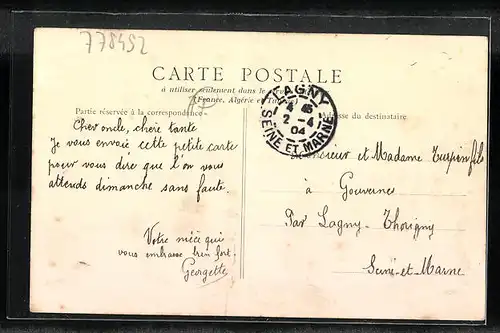 778452
CARTE POSTALE
à utiliser seulement dans le
(France, Algérie et Tunisie)
LAGNY
4 45
2 - 4
04
SEINE ET MARNE
Partie réservée à la correspondance
Adresse du destinataire
Cher oncle, chère tante
Je vous envoie cette petite carte
pour vous dire que l'on vous
attends dimanche sans faute.
Votre nièce qui
vous embrasse bien fort.
Georgette
Monsieur et Madame
à Gouverne
Par Lagny-Thorigny
Seine-et-Marne